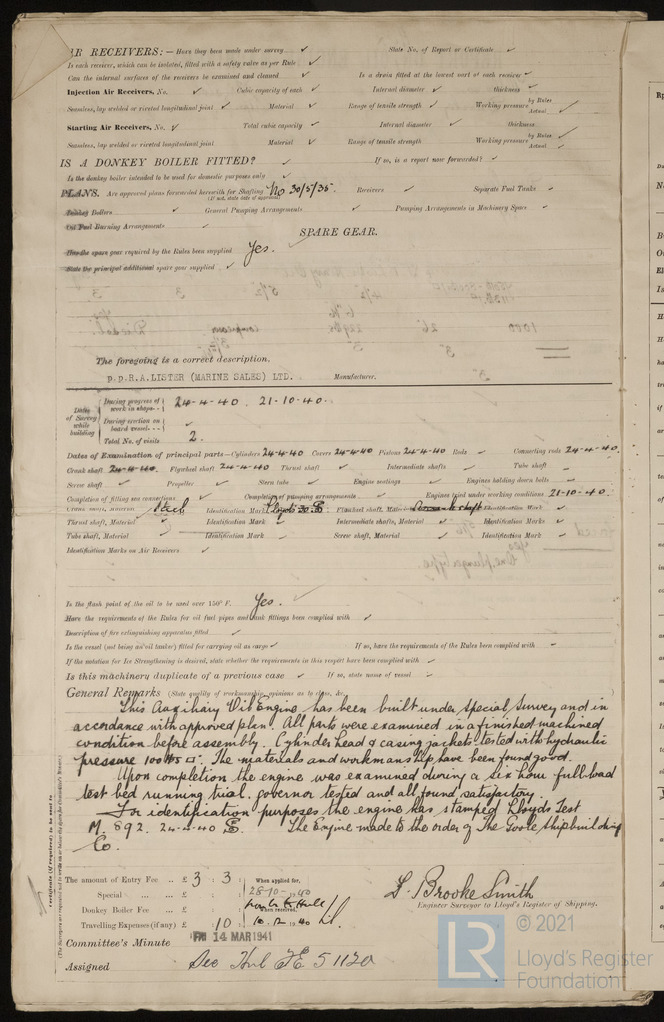 AIR RECEIVERS:— Have they been made under survey ✓ State No. of Report or Certificate ✓
Is each receiver, which can be isolated, fitted with a safety valve as per Rule ✓
Can the internal surfaces of the receivers be examined and cleaned ✓ Is a drain fitted at the lowest part of each receiver ✓
Injection Air Receivers, No. ✓ Cubic capacity of each ✓ Internal diameter ✓ thickness ✓
Seamless, lap welded or riveted longitudinal joint ✓ Material ✓ Range of tensile strength ✓ Working pressure by Rules Actual ✓
Starting Air Receivers, No. ✓ Total cubic capacity ✓ Internal diameter ✓ thickness
Seamless, lap welded or riveted longitudinal joint Material ✓ Range of tensile strength Working pressure by Rules Actual ✓
IS A DONKEY BOILER FITTED? ✓ If so, is a report now forwarded? ✓
Is the donkey boiler intended to be used for domestic purposes only ✓
PLANS. Are approved plans forwarded herewith for Shafting No 30/5/35. Receivers ✓ Separate Fuel Tanks ✓
(If not, state date of approval)
Donkey Boilers ✓ General Pumping Arrangements ✓ Pumping Arrangements in Machinery Space ✓
Oil Fuel Burning Arrangements ✓
SPARE GEAR.
Has the spare gear required by the Rules been supplied Yes.
State the principal additional spare gear supplied ✓
The foregoing is a correct description.
p.p. R.A. LISTER (MARINE SALES) LTD. Manufacturer.
Dates of Survey while building
During progress of work in shops - - 24-4-40. 21-10-40.
During erection on board vessel - - ✓
Total No. of visits 2.
Dates of Examination of principal parts—Cylinders 24-4-40 Covers 24-4-40 Pistons 24-4-40 Rods ✓ Connecting rods 24-4-40.
Crank shaft 24-4-40. Flywheel shaft 24-4-40 Thrust shaft ✓ Intermediate shafts ✓ Tube shaft ✓
Screw shaft ✓ Propeller ✓ Stern tube ✓ Engine seatings ✓ Engines holding down bolts ✓
Completion of fitting sea connections ✓ Completion of pumping arrangements ✓ Engines tried under working conditions 21-10-40.
Crank shaft, Material Steel Identification Mark Flywheel shaft, Material Identification Mark ✓
Thrust shaft, Material ✓ Identification Mark ✓ Intermediate shafts, Material ✓ Identification Marks ✓
Tube shaft, Material ✓ Identification Mark ✓ Screw shaft, Material ✓ Identification Mark ✓
Identification Marks on Air Receivers ✓
Is the flash point of the oil to be used over 150° F. Yes.
Have the requirements of the Rules for oil fuel pipes and tank fittings been complied with ✓
Description of fire extinguishing apparatus fitted ✓
Is the vessel (not being an oil tanker) fitted for carrying oil as cargo ✓ If so, have the requirements of the Rules been complied with ✓
If the notation for Ice Strengthening is desired, state whether the requirements in this respect have been complied with ✓
Is this machinery duplicate of a previous case ✓ If so, state name of vessel ✓
General Remarks (State quality of workmanship, opinions as to class, &c.
This Auxiliary Oil Engine has been built under special survey and in
accordance with approved plan. All parts were examined in a finished machined
condition before assembly. Cylinder head & casing jackets tested with hydraulic
pressure 100 lbs □". The materials and workmanship have been found good.
Upon completion the engine was examined during a six hour full load
test bed running trial, governor tested and all found satisfactory.
For identification purposes the engine has stamped Lloyds Test
M. 892. 24-4-40 The Engine made to the order of The Goole Shipbuilding
Co.
The amount of Entry Fee .. £ 3 : 3 When applied for,
Special .. ... ... £ : 28-10-1940
Donkey Boiler Fee ... £ : When received,
Travelling Expenses (if any) £ : 10 : 10.12.1940
L. Brooke Smith
Engineer Surveyor to Lloyd's Register of Shipping.
Committee's Minute FRI 14 MAR 1941
Assigned See Hul FE 51120
© 2021
LR
Lloyd's Register
Foundation